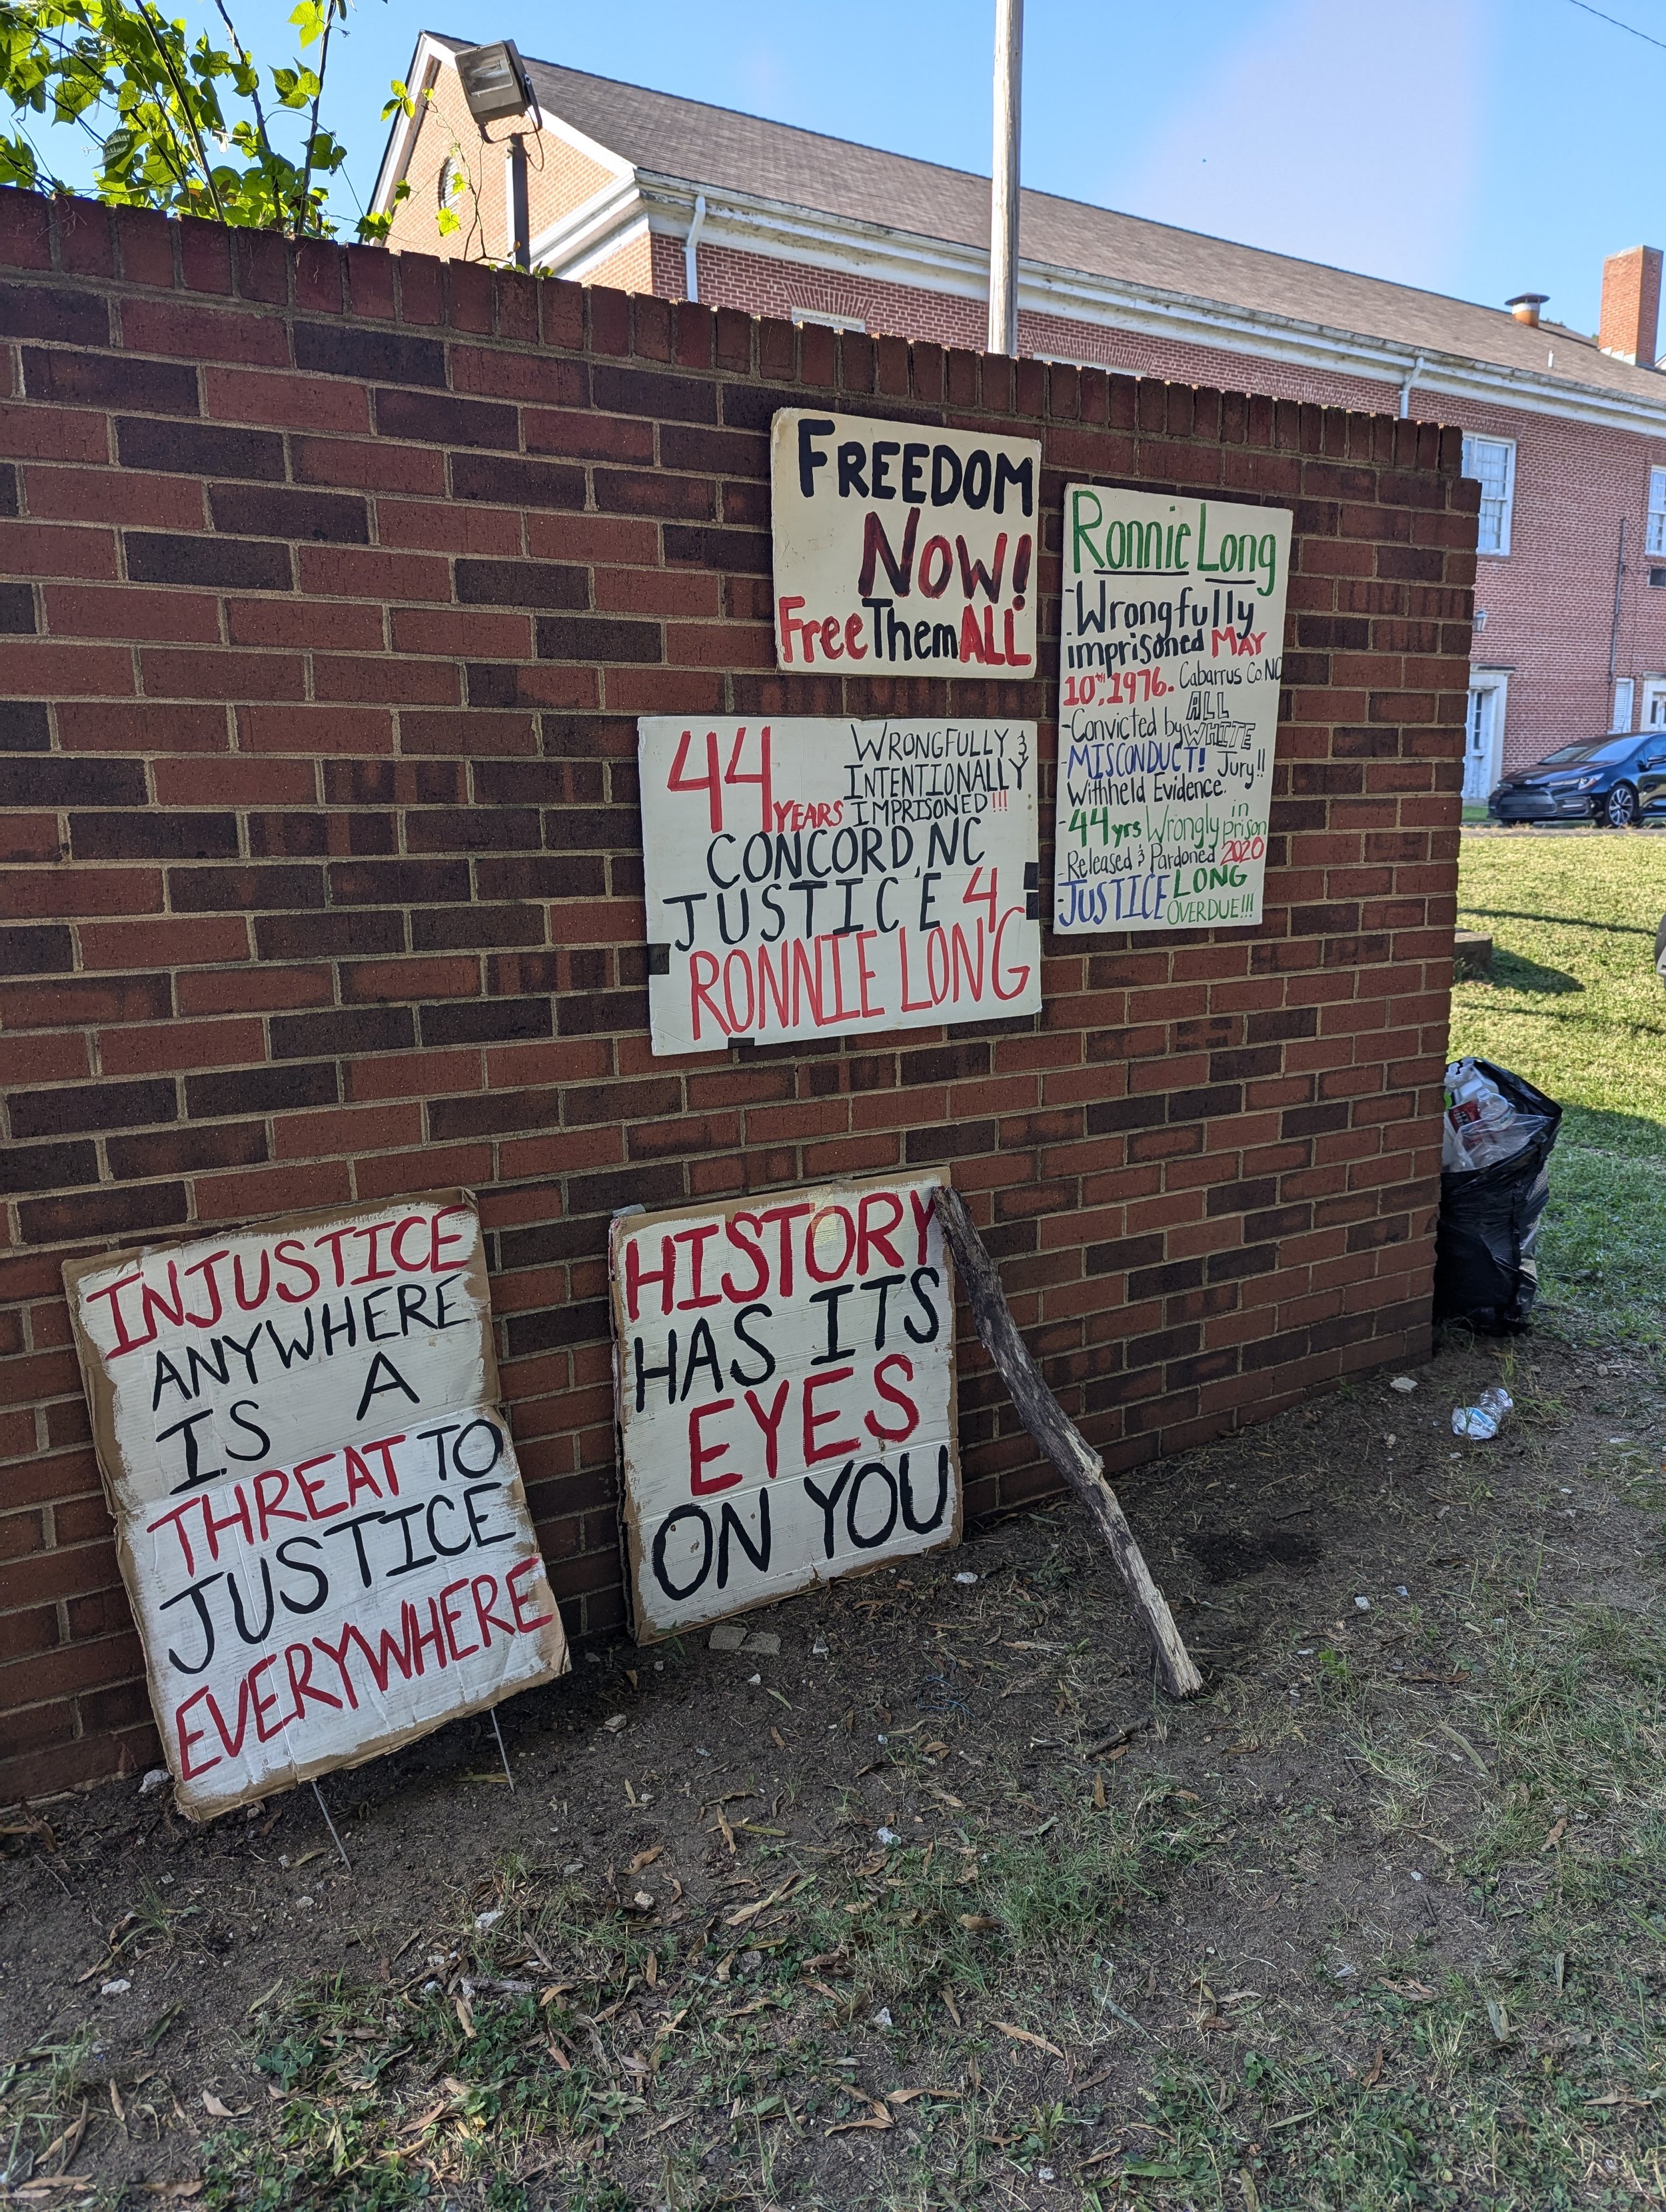 FREEDOM
NOW!
Free Them ALL
Ronnie Long
-Wrongfully
imprisoned MAY
10th, 1976. Cabarrus Co. NC
-Convicted by ALL
WHITE
Jury!!
-MISCONDUCT!
Withheld Evidence.
-44 yrs Wrongly in
prison
-Released & Pardoned 2020
-JUSTICE LONG
OVERDUE!!!
44 YEARS
WRONGFULLY &
INTENTIONALLY
IMPRISONED!!!
CONCORD, NC
JUSTICE 4
RONNIE LONG
INJUSTICE
ANYWHERE
IS A
THREAT TO
JUSTICE
EVERYWHERE
HISTORY
HAS ITS
EYES
ON YOU